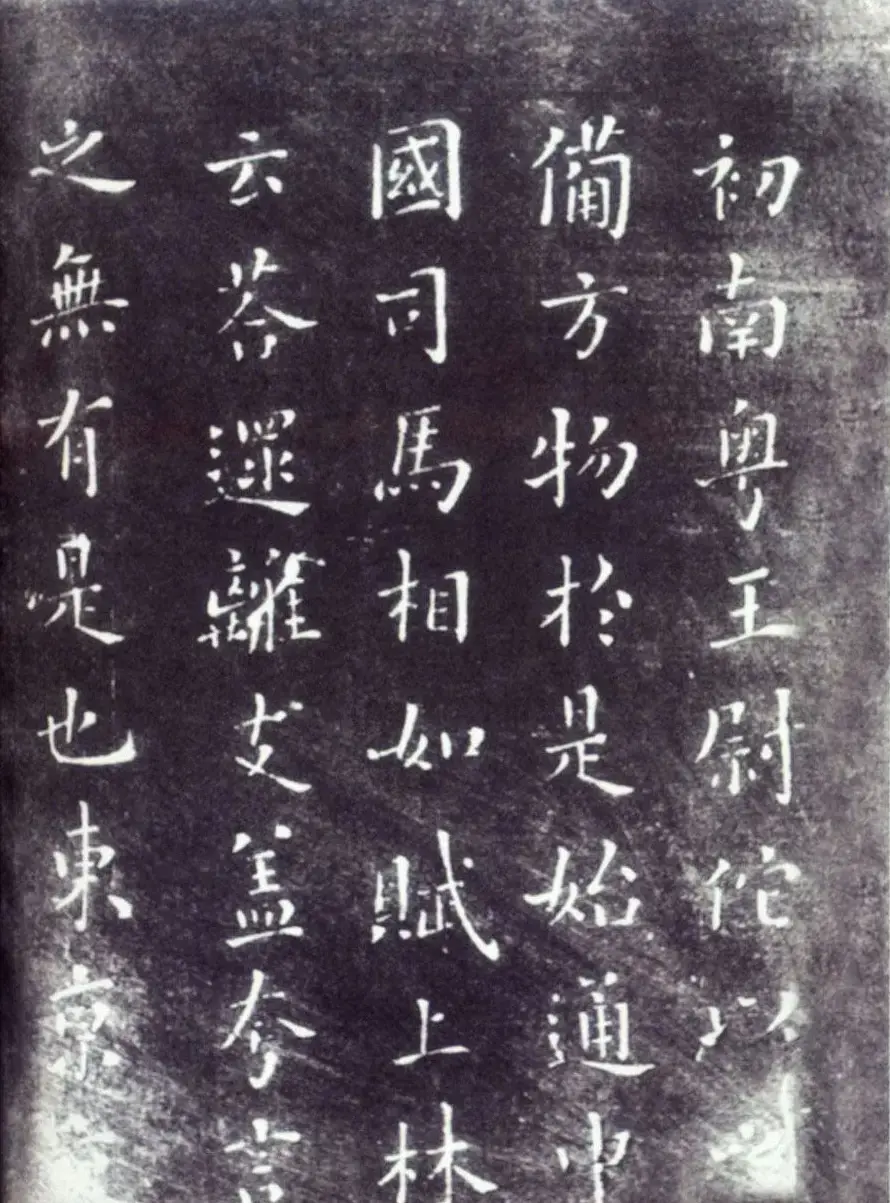 初南粤王尉佗以此
備方物於是始通中
國司馬相如賦上林
云荅遝離支盖夸言
之無有是也東京